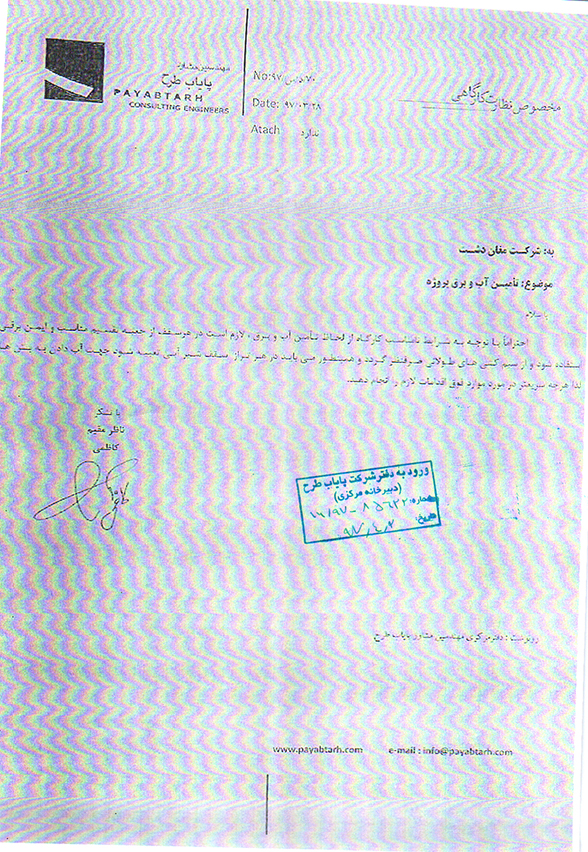 مهندسین مشاور
پایاب طرح
PAYABTARH
CONSULTING ENGINEERS
No: ۷۰
Date: ۹۷/۰۳/۲۸
Atach ندارد
مخصوص نظارت کارگاهی
به: شرکت مغان دشت
موضوع: تأمین آب و برق پروژه
با سلام
احتراماً با توجه به شرایط نامناسب کارگاه از لحاظ تأمین آب و برق، لازم است در هر سقف از جعبه تقسیم مناسب و ایمن برق
استفاده شود و از سیم کشی های طولانی صرفنظر گردد و همینطور می باید در هر تراز سقف شیر آبی تعبیه شود جهت آب دادن به بتن
لذا هرچه سریعتر در مورد موارد فوق اقدامات لازم را انجام دهید.
با تشکر
ناظر مقیم
کاظمی
ورود به دفتر شرکت پایاب طرح
(دبیرخانه مرکزی)
شماره:
تاریخ: ۹۷/۴/۲
رونوشت: دفتر مرکزی مهندسین مشاور پایاب طرح
www.payabtarh.com e-mail : info@payabtarh.com